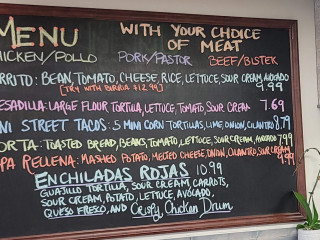 MENU
WITH YOUR CHOICE
OF MEAT
HICKEN/POLLO PORK/PASTOR BEEF/BISTEK
RRITO: BEAN, TOMATO, CHEESE, RICE, LETTUCE, SOUR CREAM, AVOCADO
[TRY WITH BIRRIA $12.99] 9.99
ESADILLA: LARGE FLOUR TORTILLA, LETTUCE, TOMATO, SOUR CREAM 7.69
NI STREET TACOS: 5 MINI CORN TORTILLAS, LIME, ONION, CILANTRO 8.79
ORTA: TOASTED BREAD, BEANS, TOMATO, LETTUCE, SOUR CREAM, AVOCADO 7.99
PA RELLENA: MASHED POTATO, MELTED CHEESE, ONION, CILANTRO, SOUR CREAM
9.99
ENCHILADAS ROJAS 10.99
GUAJILLO TORTILLA, SOUR CREAM, CARROTS,
SOUR CREAM, POTATO, LETTUCE, AVOCADO,
QUESO FRESCO, AND Crispy Chicken Drum